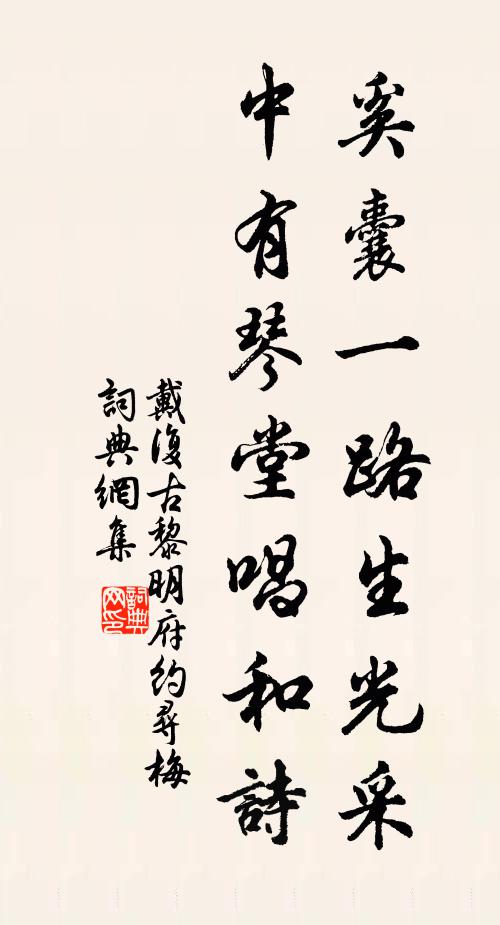 奚囊一路生光采
中有琴堂唱和詩
戴復古黎明府約尋梅
詞典網集
詞典网印